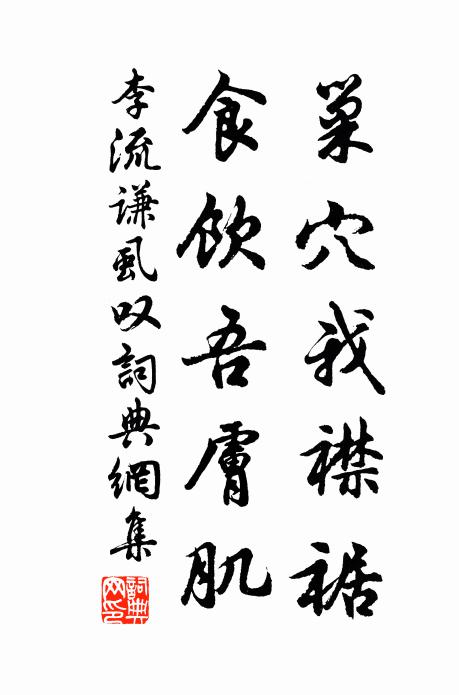 巢穴我襟裾
食飲吾膚肌
李流謙虱叹詞典網集
詞典
网印